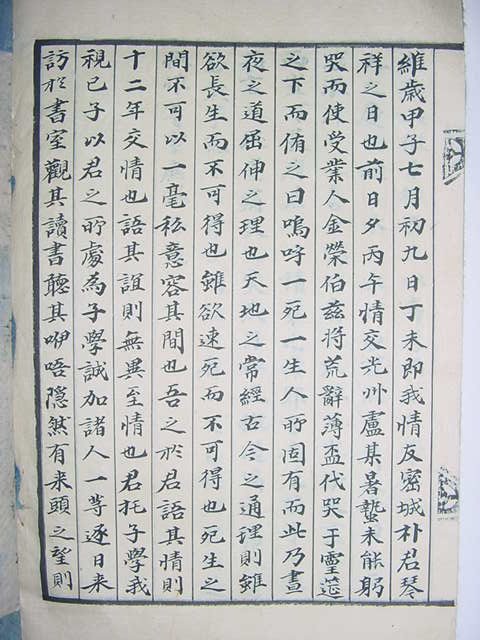 維歲甲子七月初九日丁未即我情友密城朴君琴
祥之日也前日夕丙午情交光州盧某暑蟄未能躬
哭而使受業人金榮伯玆將荒辭薄盃代哭于靈筵
之下而侑之曰嗚呼一死一生人所固有而此乃晝
夜之道屈伸之理也天地之常經古今之通理則雖
欲長生而不可得也雖欲速死而不可得也死生之
間不可以一毫私意容其間也吾之於君語其情則
十二年交情也語其誼則無異至情也君托子學我
視已子以君之所處爲子學誠加諸人一等逐日來
訪於書室觀其讀書聽其咿唔隱然有來頭之望則